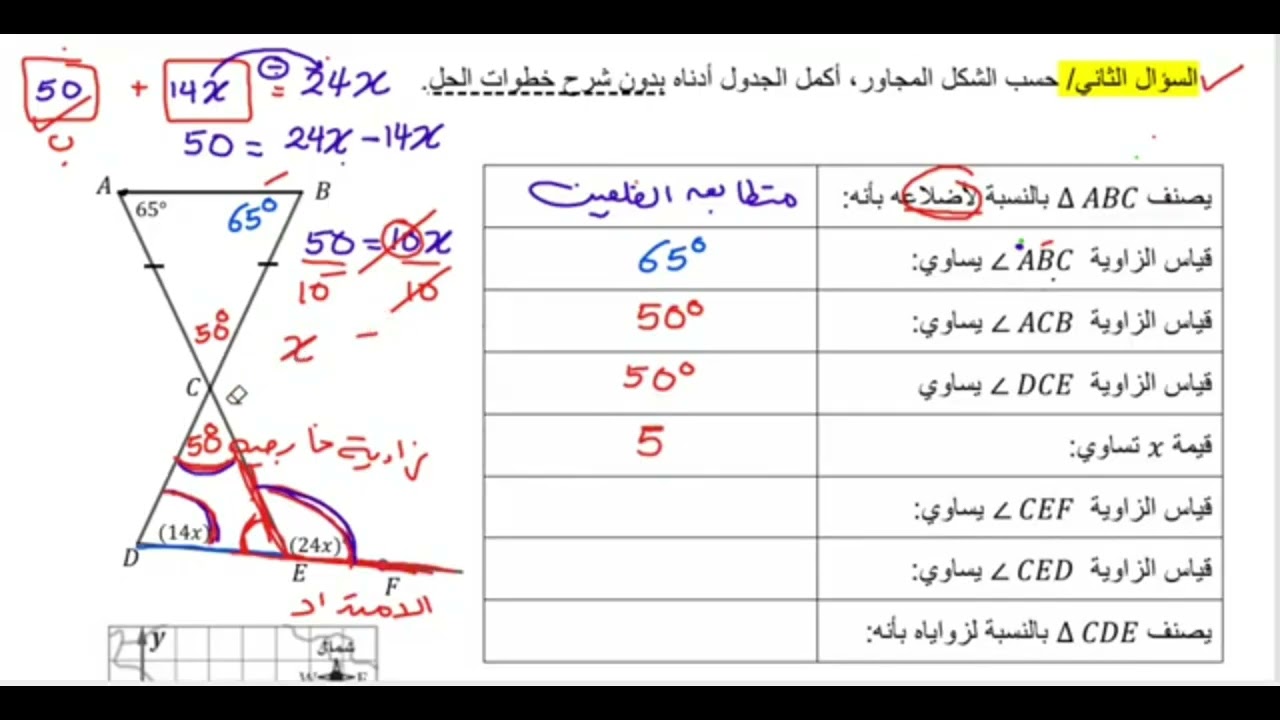 50 + 14x = 24x
50 = 24x - 14x
السؤال الثاني/ حسب الشكل المجاور، أكمل الجدول أدناه بدون شرح خطوات الحل.
A
B
65°
65°
50 = 10x
10 10
50°
x =
C
50 زاوية خارجية
(14x)
(24x)
D
E
F
الامتداد
y
شمال
N
W E
يصنف Δ ABC بالنسبة لأضلاعه بأنه: متطابق الضلعين
قياس الزاوية ∠ ABC يساوي: 65°
قياس الزاوية ∠ ACB يساوي: 50°
قياس الزاوية ∠ DCE يساوي 50°
قيمة x تساوي: 5
قياس الزاوية ∠ CEF يساوي:
قياس الزاوية ∠ CED يساوي:
يصنف Δ CDE بالنسبة لزواياه بأنه: